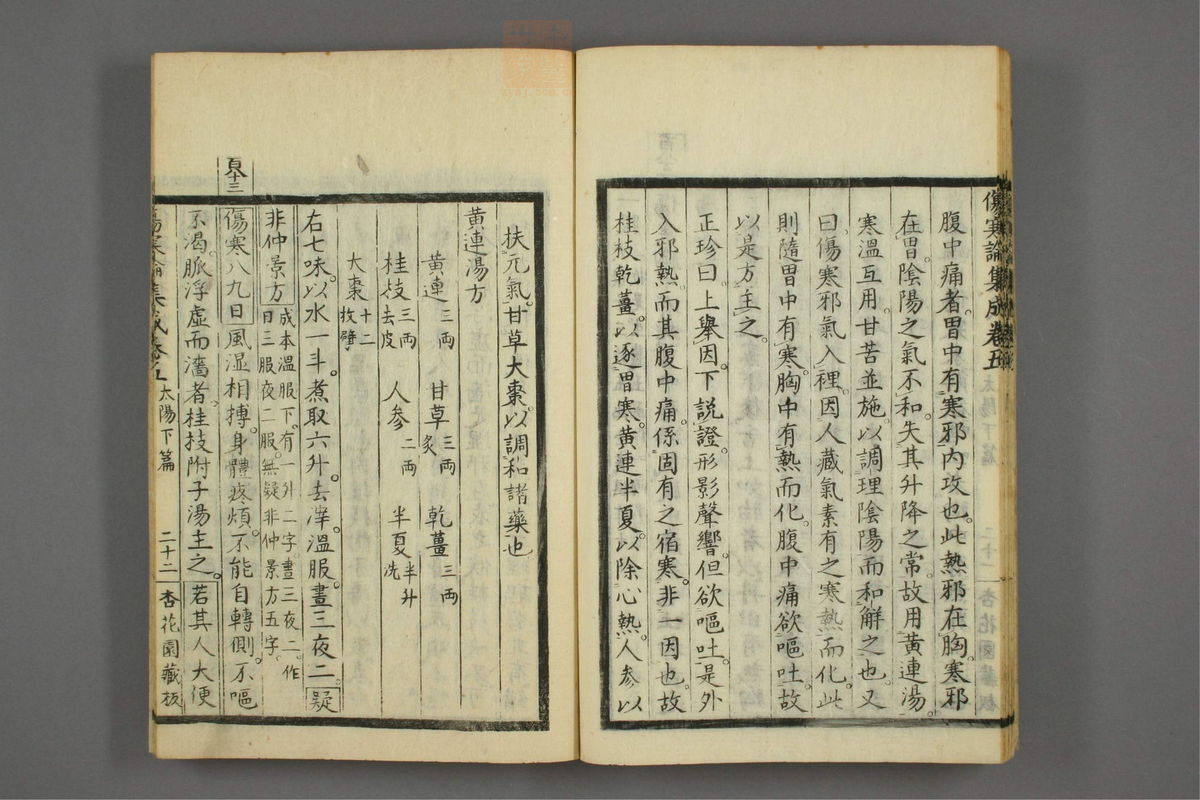 傷寒論集成卷五
腹中痛者。胃中有寒邪內攻也。此熱邪在胸。寒邪
在胃。陰陽之氣不和。失其升降之常。故用黃連湯。
寒溫互用。甘苦並施。以調理陰陽而和解之也。又
曰。傷寒邪氣入裡。因人藏氣素有之寒熱而化。此
則隨胃中有寒。胸中有熱而化。腹中痛欲嘔吐。故
以是方主之。
正珍曰。上舉因。下說證。形影聲響。但欲嘔吐。是外
入邪熱。而其腹中痛。係固有之宿寒。非一因也。故
桂枝乾薑。以逐胃寒。黃連半夏。以除心熱。人參以
扶元氣。甘草大棗。以調和諸藥也
黃連湯方
黃連三兩 甘草三兩炙 乾薑三兩
桂枝三兩去皮 人參二兩 半夏半升洗
大棗十二枚擘
右七味。以水一斗。煮取六升。去滓。溫服。晝三夜二。疑
非仲景方 成本溫服下。有一升二字。晝三夜二。作
日三服夜二服。無疑非仲景方五字。
百七十三
傷寒八九日風湿相搏。身體疼煩。不能自轉側。不嘔
不渴。脈浮虛而濇者。桂枝附子湯主之。若其人大便
傷寒論集成卷五 太陽下篇 二十二 杏花園藏板